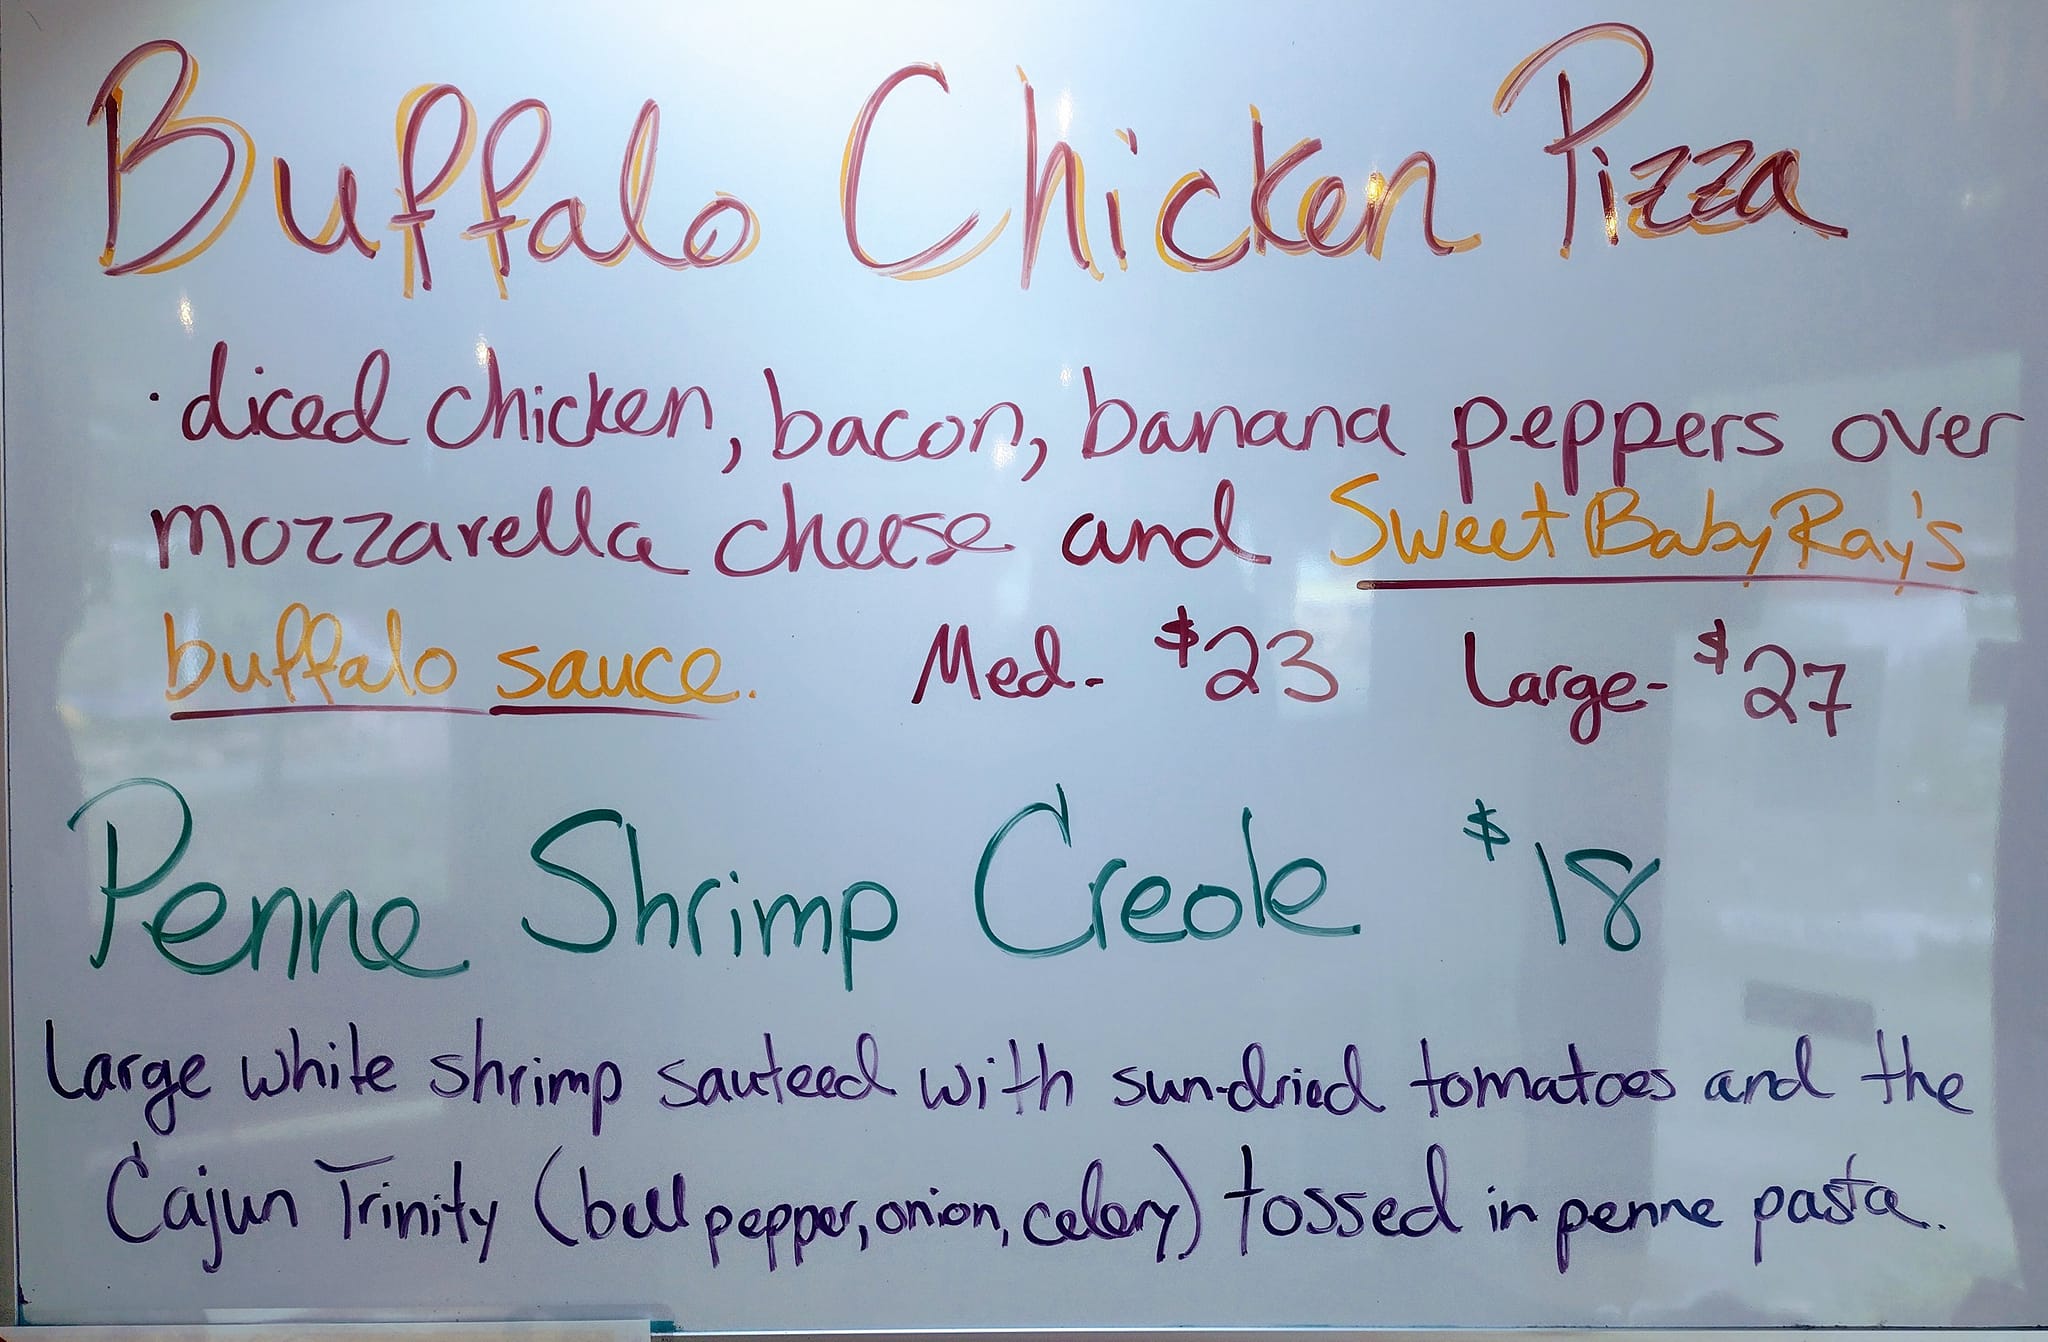 Buffalo Chicken Pizza
· diced chicken, bacon, banana peppers over
mozzarella cheese and Sweet Baby Ray's
buffalo sauce. Med. $23 Large- $27
Penne Shrimp Creole $18
Large white shrimp sauteed with sun-dried tomatoes and the
Cajun Trinity (bell pepper, onion, celery) tossed in penne pasta.